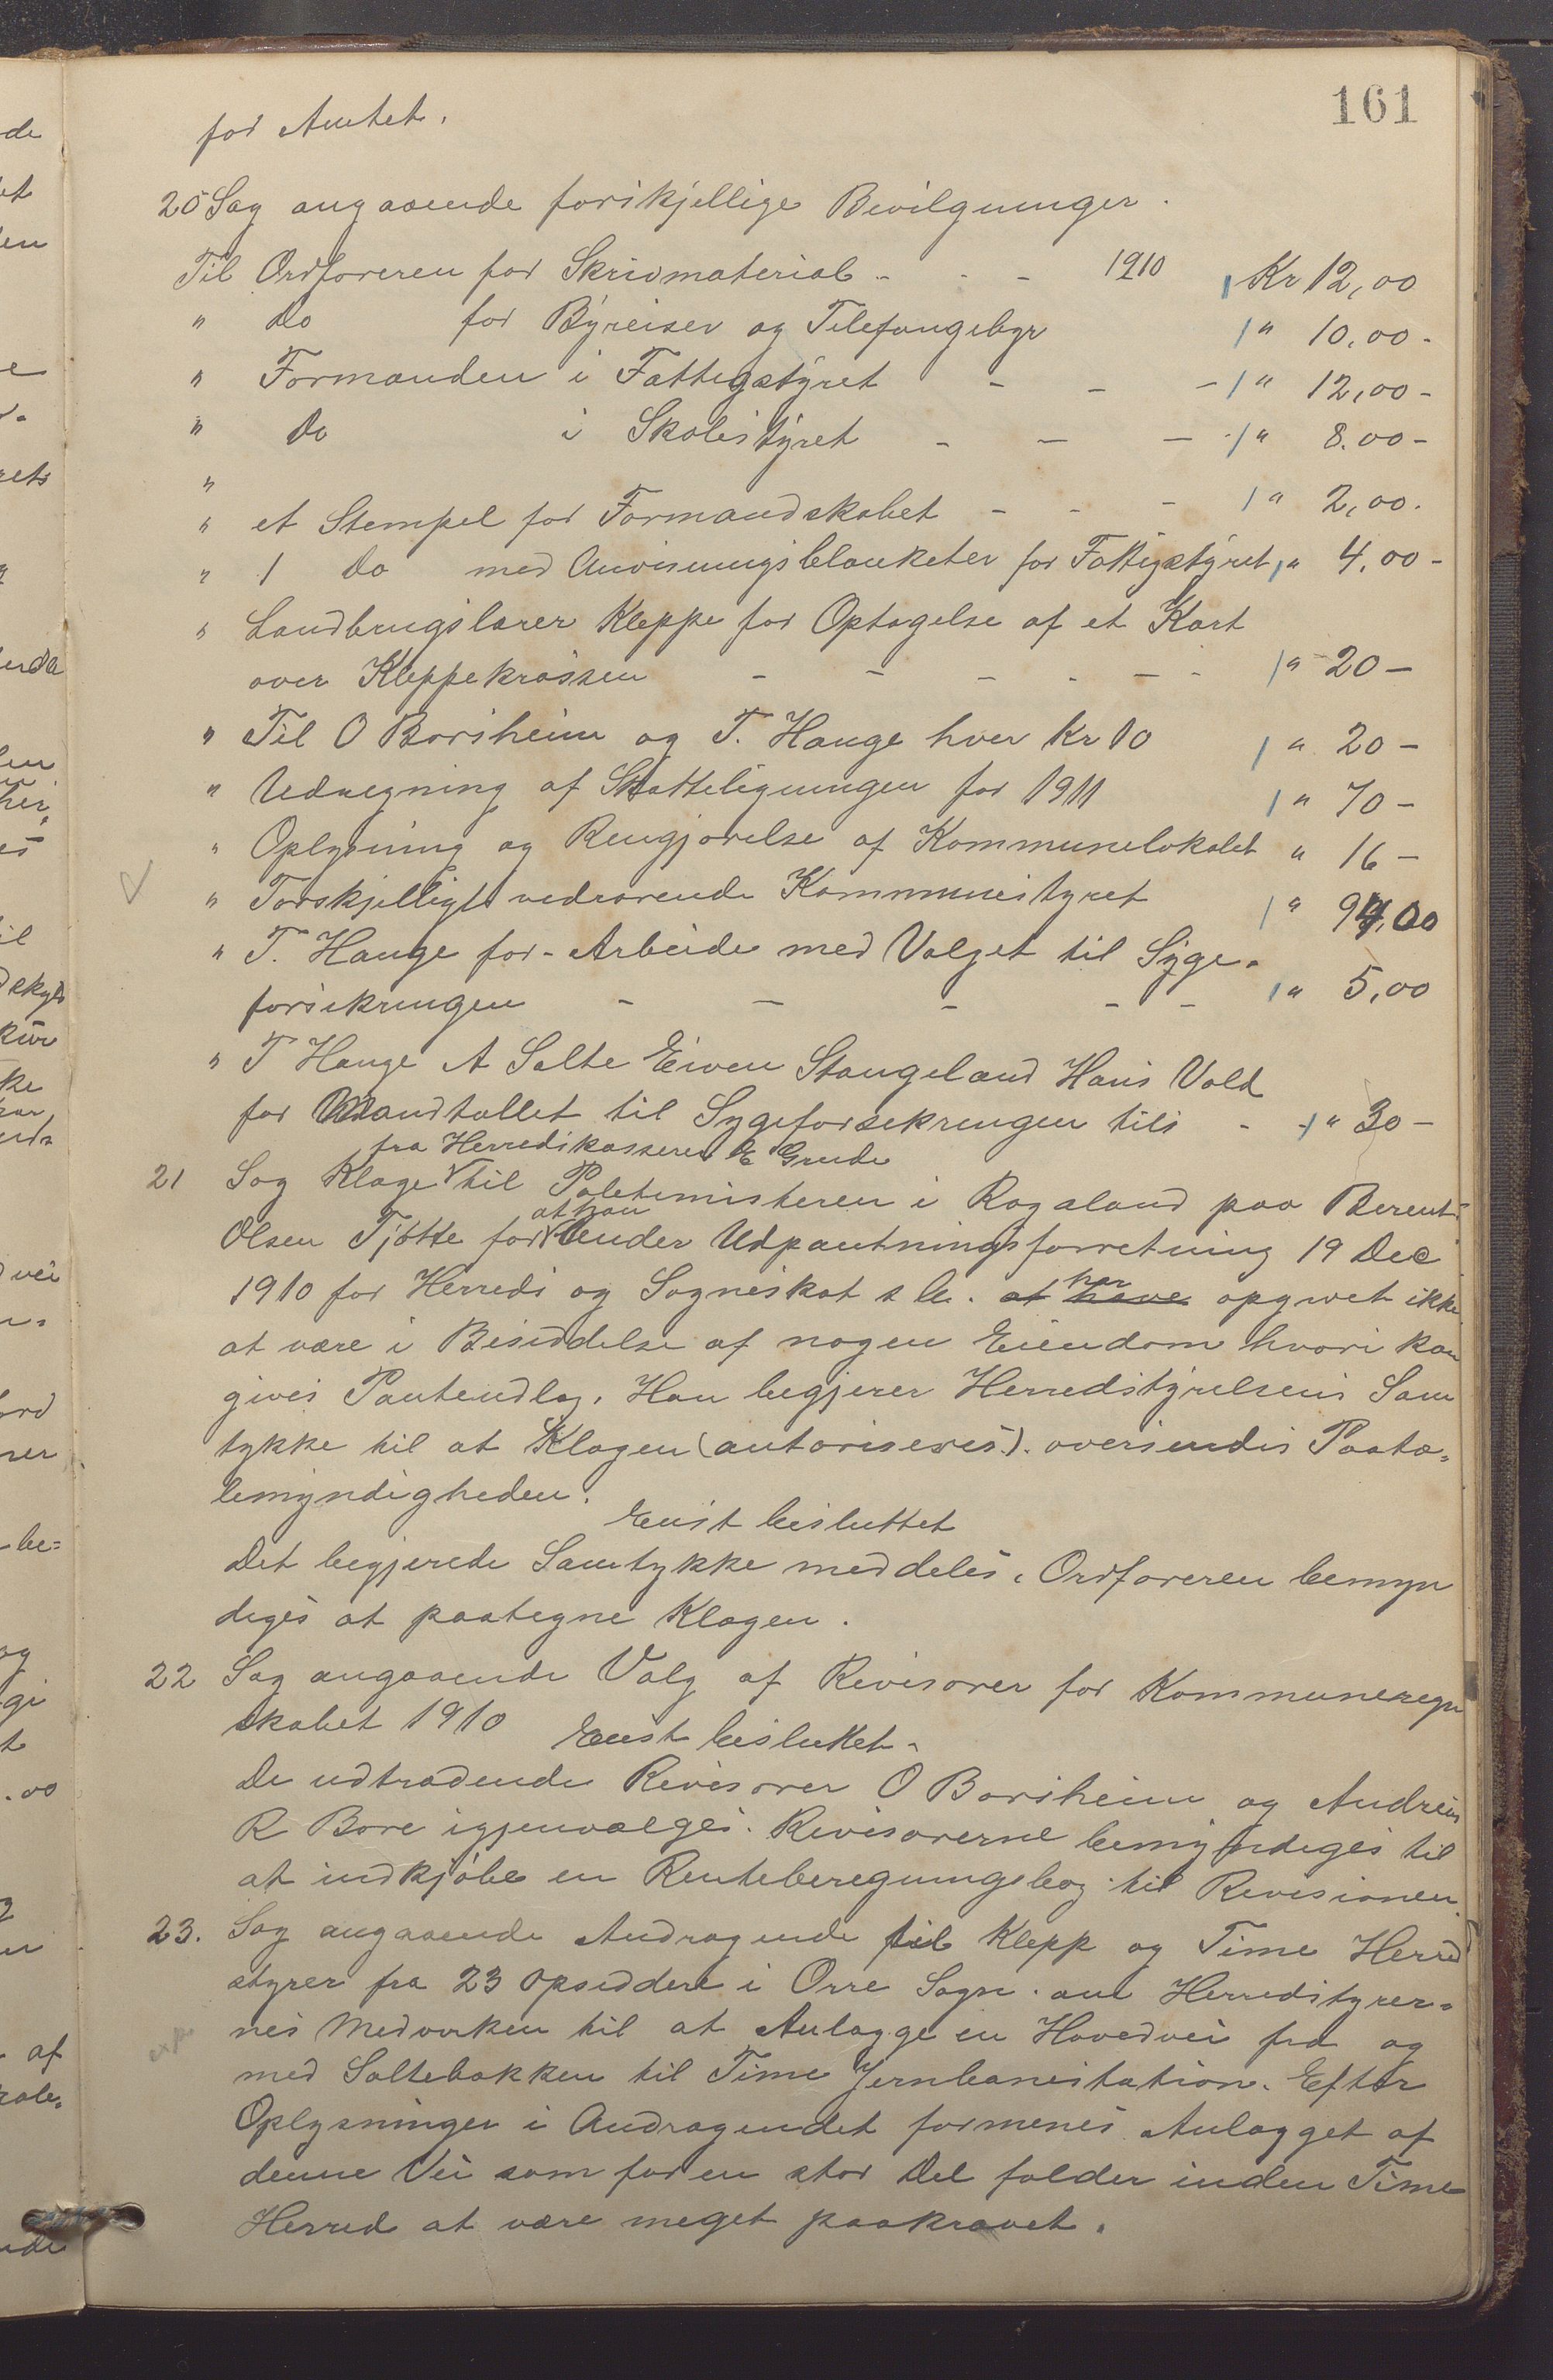 161
for Amtet.
20 Sag angaaende forskjellige Bevilgninger.
Til Ordføreren for Skrivmaterial - - - 1910 Kr 12,00
" Do for Byreiser og Telefongebyr " 10,00 -
" Formanden i Fattigstyret - - - " 12,00 -
" Do i Skolestyret - - - " 8.00 -
"
" et Stempel for Formandskabet - - - " 2,00.
" 1 Do med Anvisningsblanketer for Fattigstyret " 4,00 -
" Landbrugslærer Kleppe for Optagelse af et Kart
over Kleppekrossen - - - - - - " 20 -
" Til O Borsheim og T. Hauge hver Kr 10 " 20 -
" Udregning af Skatteligningen for 1911 " 70 -
" Oplysning og Rengjørelse af Kommunelokalet " 16 -
" Forskjelligt vedrørende Kommunestyret " 94,00
" T. Hauge for Arbeide med Valget til Syge-
forsikringen - - - - - " 5,00
" T Hauge A Salte Eiven Stangeland Hans Vold
for Mandtallet til Sygeforsekringen tils - " 30 -
fra Herredskasserer E Grude
21 Sag Klage til Politimisteren i Rogaland paa Berent
at han
Olsen Tjøtte for under Udpantningsforretning 19 Dec
har
1910 for Herreds og Sogneskat s b. at have opgivet ikke
at være i Besiddelse af nogen Eiendom hvori kan
gives Panteudlæg. Han begjerer Herredstyrelsens Sam
tykke til at Klagen (autoriseres). oversendes Paata-
lemyndigheden.
Enst besluttet
Det begjerede Samtykke meddeles. Ordføreren bemyn
diges at paategne Klagen.
22 Sag angaaende Valg af Revisorer for Kommuneregn
skabet 1910 Enst besluttet.
De udtrædende Revisorer O Borsheim og Andreas
R Bore igjenvælges. Revisorerne bemyndiges til
at indkjøbe en Renteberegningsbog til Revisionen.
23. Sag angaaende Andragende til Klepp og Time Herred
styrer fra 23 Opsiddere i Orre Sogn. om Herredstyrer-
nes Medvirken til at Anlægge en Hovedvei fra og
med Saltebakken til Time Jernbanestation. Efter
Oplysninger i Andragendet formenes Anlægget af
denne Vei som for en stor Del falder inden Time
Herred at være meget paakrævet.